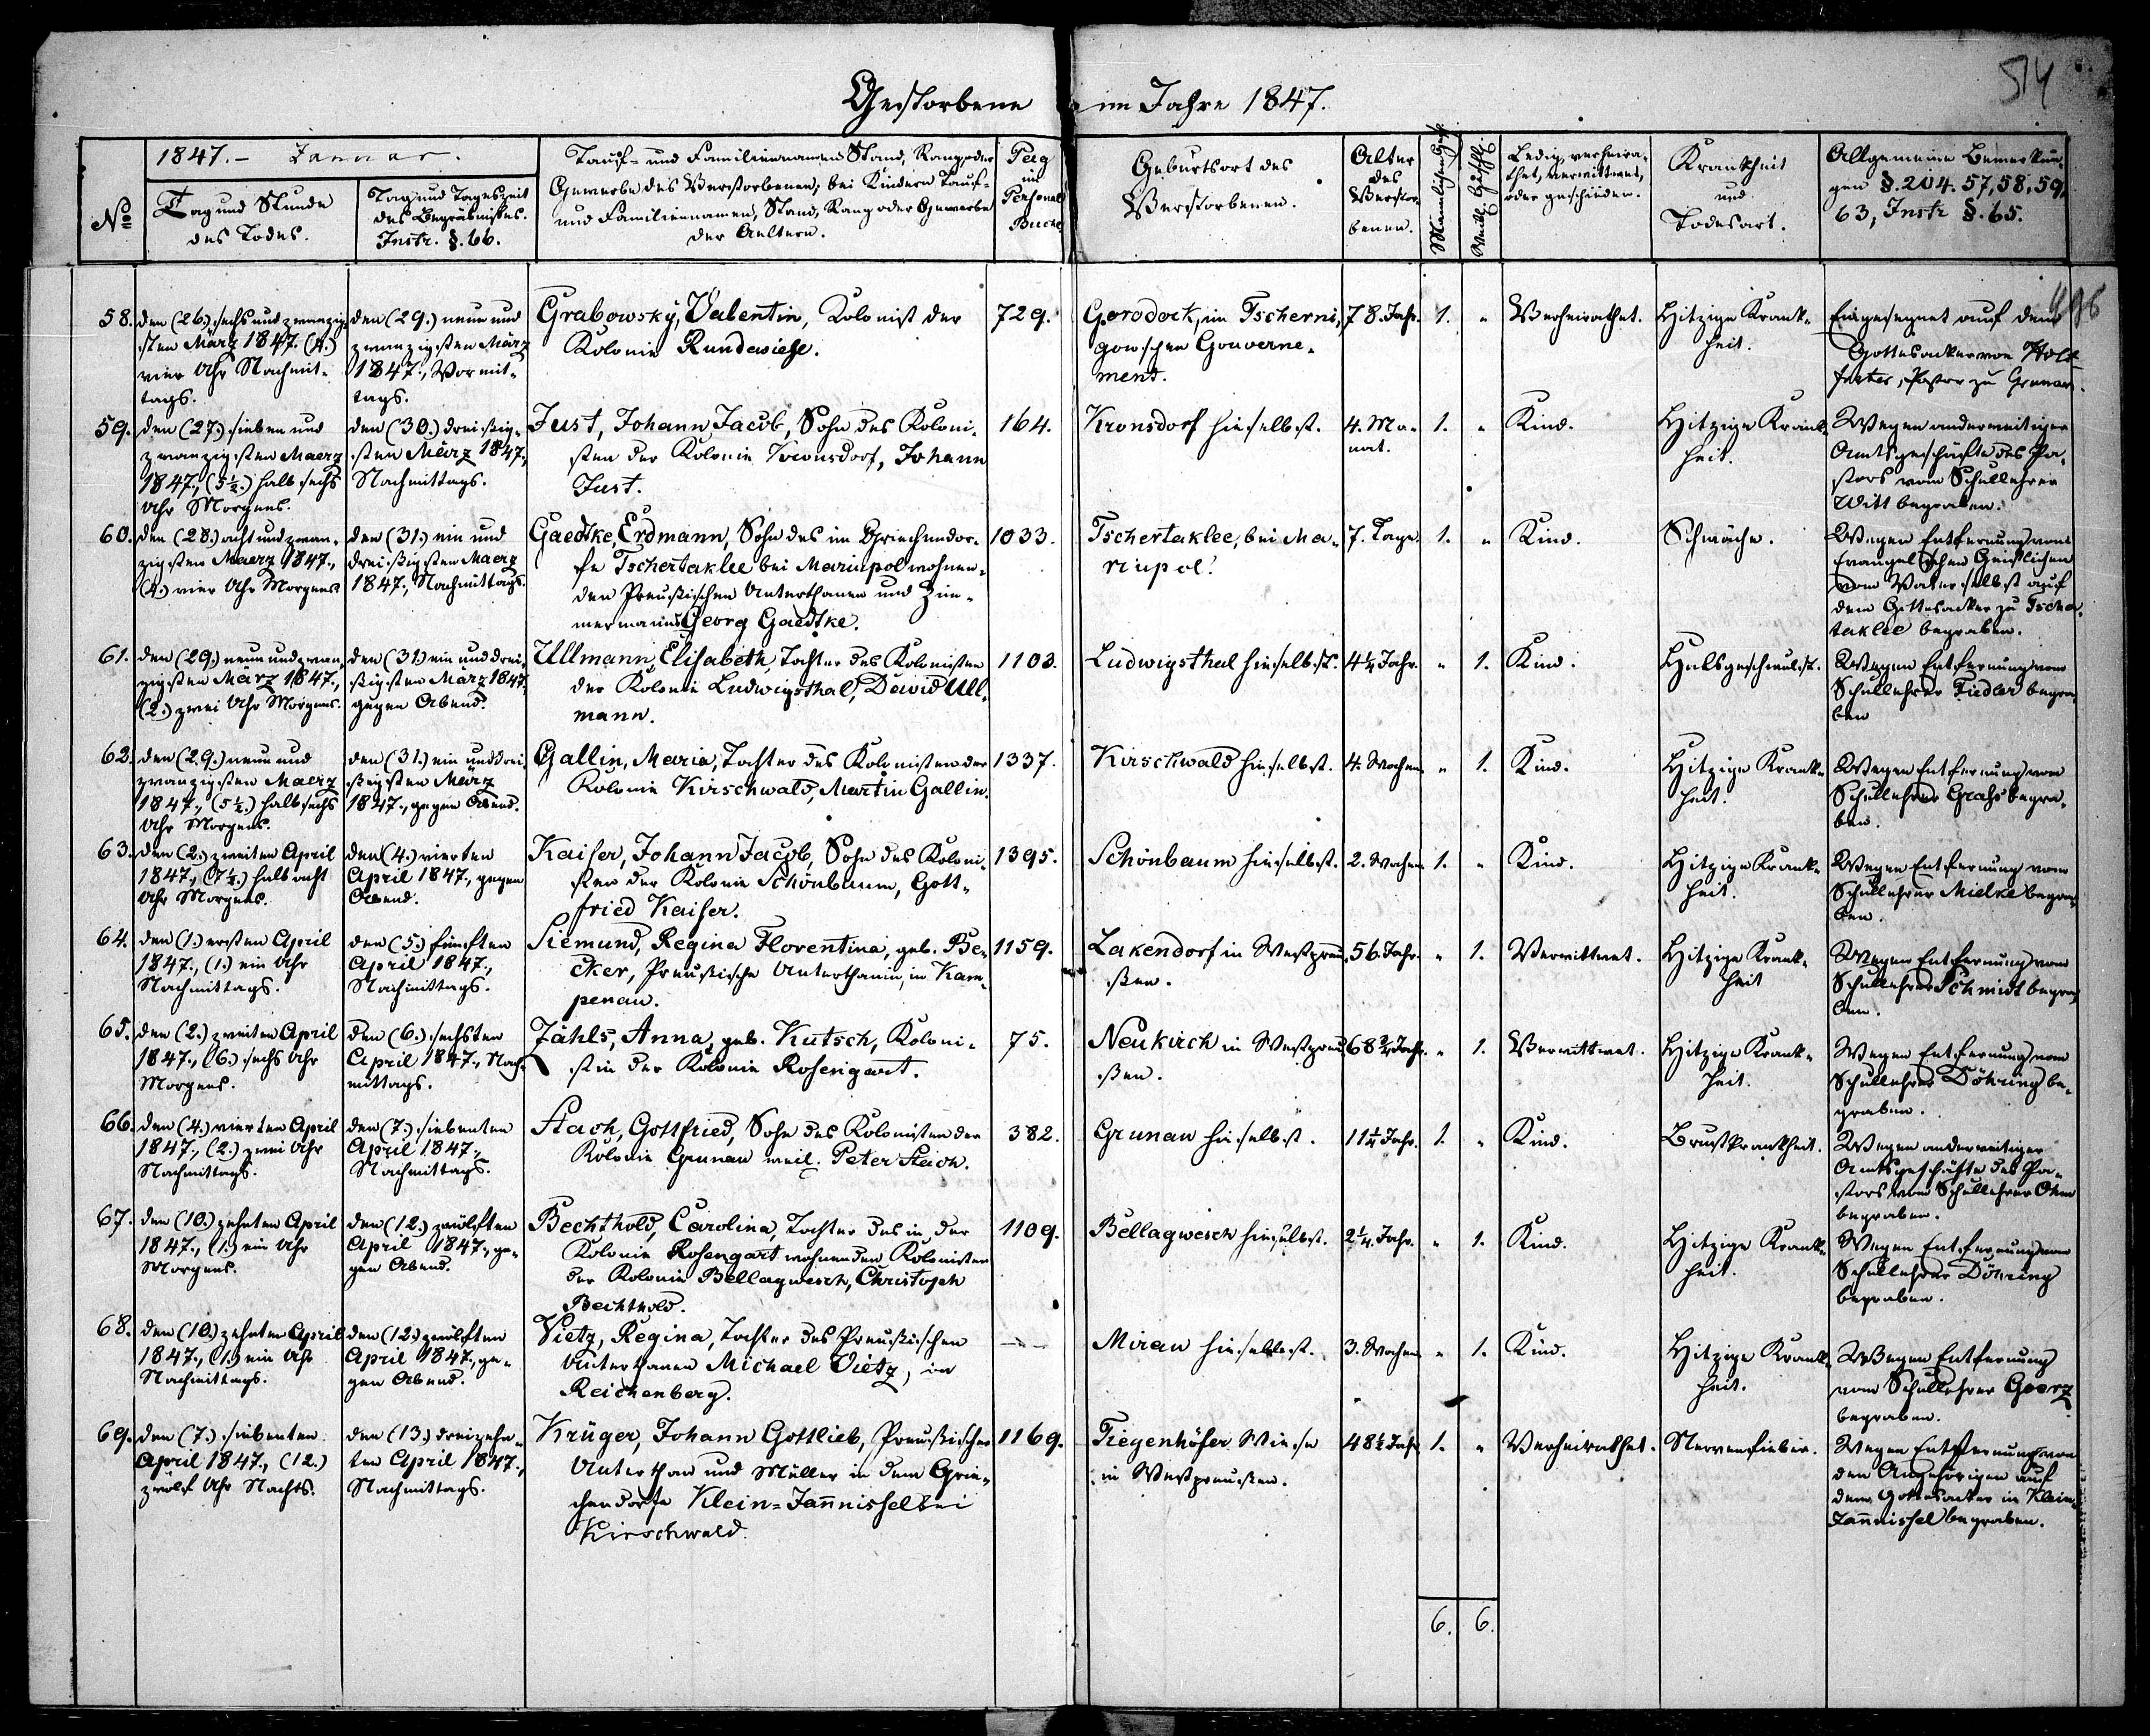 514
Gestorbene im Jahre 1847.
1847. - Januar.
№
Tag und Stunde
des Todes.
Tag und Tageszeit
des Begräbnisses.
Instr. §. 66.
Tauf- und Familiennamen, Stand, Rang oder
Gewerbe des Verstorbenen; bei Kindern Tauf-
und Familiennamen, Stand, Rang oder Gewerbe
der Aeltern.
Pag
im
Personal
Buche
Geburtsort des
Verstorbenen.
Alter
des
Verstor-
benen.
Männlichen Gesch.
Weibl. Geschl.
Ledig, verheira-
thet, verwittwet,
oder geschieden.
Krankheit
und
Todesart.
Allgemeine Bemerkun-
gen §. 204. 57, 58, 59,
63, Instr §. 65.
58.
den (26.) sechs und zwanzig-
sten März 1847. (4.)
vier Uhr Nachmit-
tags.
den (29.) neun und
zwanzigsten März
1847., Vormit-
tags.
Grabowsky, Valentin, Kolonist der
Kolonie Rundewiese.
729.
Gorodock, im Tscherni-
gowschen Gouverne-
ment.
78. Jahr.
1.
"
Verheirathet.
Hitzige Krank-
heit.
Eingesegnet auf dem
Gottesacker von Holt-
freter, Pastor zu Grunau.
59.
den (27.) sieben und
zwanzigsten Maerz
1847., (5½.) halb sechs
Uhr Morgens.
den (30.) dreißig-
sten März 1847.,
Nachmittags.
Just, Johann Jacob, Sohn des Koloni-
sten der Kolonie Kronsdorf, Johann
Just.
164.
Kronsdorf hieselbst.
4. Mo-
nat.
1.
"
Kind.
Hitzige Krank-
heit.
Wegen anderweitiger
Amtsgeschäfte des Pa-
stors vom Schullehrer
Witt begraben.
60.
den (28.) acht und zwan-
zigsten Maerz 1847.,
(4.) vier Uhr Morgens
den (31.) ein und
dreißigsten Maerz
1847., Nachmittags.
Gaedtke, Erdmann, Sohn des im Griechendor-
fe Tschertaklee bei Mariupol wohnen-
den Preußischen Unterthanen und Zim-
mermanns Georg Gaedtke.
1033.
Tschertaklee, bei Ma-
riupol.
7. Tage.
1.
"
Kind.
Schwäche.
Wegen Entfernung vom
Evangelischen Geistlichen
vom Vater selbst auf
dem Gottesacker zu Tscher-
taklee begraben.
61.
den (29.) neun und zwan-
zigsten März 1847.,
(2.) zwei Uhr Morgens.
den (31.) ein und drei-
ßigsten März 1847.,
gegen Abend.
Ullmann, Elisabeth, Tochter des Kolonisten
der Kolonie Ludwigsthal, David Ull-
mann.
1103.
Ludwigsthal hieselbst.
4¼ Jahr.
"
1.
Kind.
Halsgeschwulst.
Wegen Entfernung vom
Schullehrer Fiedler begra-
ben
62.
den (29.) neun und
zwanzigsten Maerz
1847., (5½.) halb sechs
Uhr Morgens.
den (31.) ein und drei-
ßigsten März
1847., gegen Abend.
Gallin, Maria, Tochter des Kolonisten der
Kolonie Kirschwald, Martin Gallin.
1337.
Kirschwald hieselbst.
4. Wochen
"
1.
Kind.
Hitzige Krank-
heit.
Wegen Entfernung vom
Schullehrer Grahs begra-
ben.
63.
den (2.) zweiten April
1847., (7½.) halb acht
Uhr Morgens.
den (4.) vierten
April 1847., gegen
Abend.
Kaiser, Johann Jacob, Sohn des Koloni-
sten der Kolonie Schönbaum, Gott-
fried Kaiser.
1395.
Schönbaum hieselbst.
2. Wochen
1.
"
Kind.
Hitzige Krank-
heit.
Wegen Entfernung vom
Schullehrer Mielke begra-
ben.
64.
den (1.) ersten April
1847., (1.) ein Uhr
Nachmittags.
den (5.) fünften
April 1847.,
Nachmittags.
Siemund, Regina Florentina, geb. Be-
cker, Preußische Unterthanin, in Kam-
penau.
1159.
Lakendorf in Westpreu-
ßen.
56. Jahr.
"
1.
Verwittwet.
Hitzige Krank-
heit
Wegen Entfernung vom
Schullehrer Schmidt begra-
ben.
65.
den (2.) zweiten April
1847., (6.) sechs Uhr
Morgens.
den (6.) sechsten
April 1847., Nach-
mittags.
Jähls, Anna, geb. Kutsch, Koloni-
stin der Kolonie Rosengart.
75.
Neukirch in Westpreu-
ßen.
68¾ Jahr.
"
1.
Verwittwet.
Hitzige Krank-
heit.
Wegen Entfernung vom
Schullehrer Döhring be-
graben.
66.
den (4.) vierten April
1847., (2.) zwei Uhr
Nachmittags.
den (7.) siebenten
April 1847.,
Nachmittags.
Stach, Gottfried, Sohn des Kolonisten der
Kolonie Grunau weil. Peter Stach.
382.
Grunau hieselbst.
11¼ Jahr.
1.
"
Kind.
Brustkrankheit.
Wegen anderweitiger
Amtsgeschäfte des Pa-
stors vom Schullehrer Ohm
begraben.
67.
den (10.) zehnten April
1847., (1.) ein Uhr
Morgens.
den (12.) zwölften
April 1847., ge-
gen Abend.
Bechthold, Carolina, Tochter des in der
Kolonie Rosengart wohnenden Kolonisten
der Kolonie Bellagwesch, Christoph
Bechthold.
1109.
Bellagwesch hieselbst.
2¼ Jahr.
"
1.
Kind.
Hitzige Krank-
heit.
Wegen Entfernung vom
Schullehrer Döhring
begraben.
68.
den (10.) zehnten April
1847., (1.) ein Uhr
Nachmittags.
den (12.) zwölften
April 1847., ge-
gen Abend.
Vietz, Regina, Tochter des Preußischen
Unterthanen Michael Vietz, in
Reichenberg.
—
Mirau hieselbst.
3. Wochen
"
1.
Kind.
Hitzige Krank-
heit.
Wegen Entfernung
vom Schullehrer Goerz
begraben.
69.
den (7.) siebenten
April 1847., (12.)
zwölf Uhr Nachts.
den (13.) dreizehn-
ten April 1847.,
Nachmittags.
Krüger, Johann Gottlieb, Preußischer
Unterthan und Müller in dem Grie-
chendorfe Klein-Jannissel bei
Kirschwald.
1169.
Tiegenhöfer Wiese
in Westpreußen.
48½ Jahr
1.
"
Verheirathet.
Nervenfieber.
Wegen Entfernung von
den Angehörigen auf
dem Gottesacker in Klein-
Jannissel begraben.
6.
6.